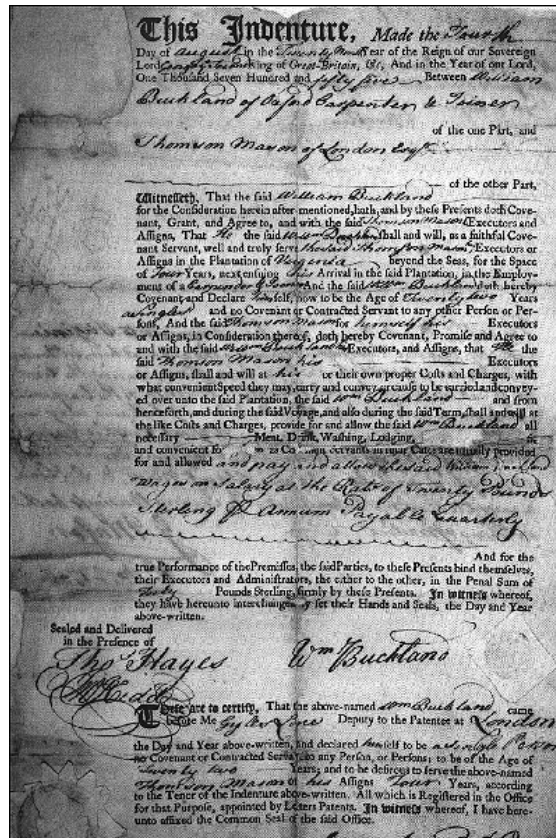 This Indenture, Made the Fourth
Day of August in the Twenty Ninth Year of the Reign of our Sovereign
Lord George the King of Great-Britain, &c. And in the Year of our Lord,
One Thousand Seven Hundred and fifty five Between William
Buckland of Oxford Carpenter & Joiner
of the one Part, and
Thomson Mason of London Esqr.
of the other Part,
Witnesseth, That the said William Buckland
for the Consideration herein after-mentioned, hath, and by these Presents doth Cove-
nant, Grant, and Agree to, and with the said Thomson Mason Executors and
Assigns, That He the said Wm Buckland shall and will, as a faithful Cove-
nant Servant, well and truly serve the said Thomson Mason Executors or
Assigns in the Plantation of Virginia beyond the Seas, for the Space
of Four Years, next ensuing his Arrival in the said Plantation, in the Employ-
ment of a Carpenter & Joiner And the said Wm Buckland doth hereby
Covenant and Declare himself, now to be the Age of Twenty two Years
a Single and no Covenant or Contracted Servant to any other Person or Per-
sons, And the said Thomson Mason for himself his Executors
or Assigns, in Consideration thereof, doth hereby Covenant, Promise and Agree to
and with the said Wm Buckland his Executors, and Assigns, that He the
said Thomson Mason his Executors
or Assigns, shall and will at his or their own proper Costs and Charges, with
what convenient Speed they may, carry and convey or cause to be carried and convey-
ed over unto the said Plantation, the said Wm Buckland and from
henceforth, and during the said Voyage, and also during the said Term, shall and will at
the like Costs and Charges, provide for and allow the said Wm Buckland all
necessary Meat, Drink, Washing, Lodging,
and convenient for as Covenant Servants in such Cases are usually provided
for and allowed and pay and allow the said William Buckland
Wages or Salary at the Rate of Twenty Pounds
Sterling Pr Annum Payable Quarterly
And for the
true Performance of the Premisses, the said Parties, to these Presents bind themselves,
their Executors and Administrators, the either to the other, in the Penal Sum of
Forty Pounds Sterling, firmly by these Presents. In witness whereof,
they have hereunto interchangeably set their Hands and Seals, the Day and Year
above-written.
Sealed and Delivered
in the Presence of
Thos Hayes Wm Buckland
These are to certify, That the above-named Wm Buckland came
before Me Deputy to the Patentee at London
the Day and Year above-written, and declared himself to be a Single Person
no Covenant or Contracted Servant to any Person, or Persons; to be of the Age of
Twenty two Years; and to be desirous to serve the above-named
Thomson Mason or his Assigns Four Years, according
to the Tenor of the Indenture above-written. All which is Registered in the Office
for that Purpose, appointed by Letters Patents. In witness whereof, I have here-
unto affixed the Common Seal of the said Office.